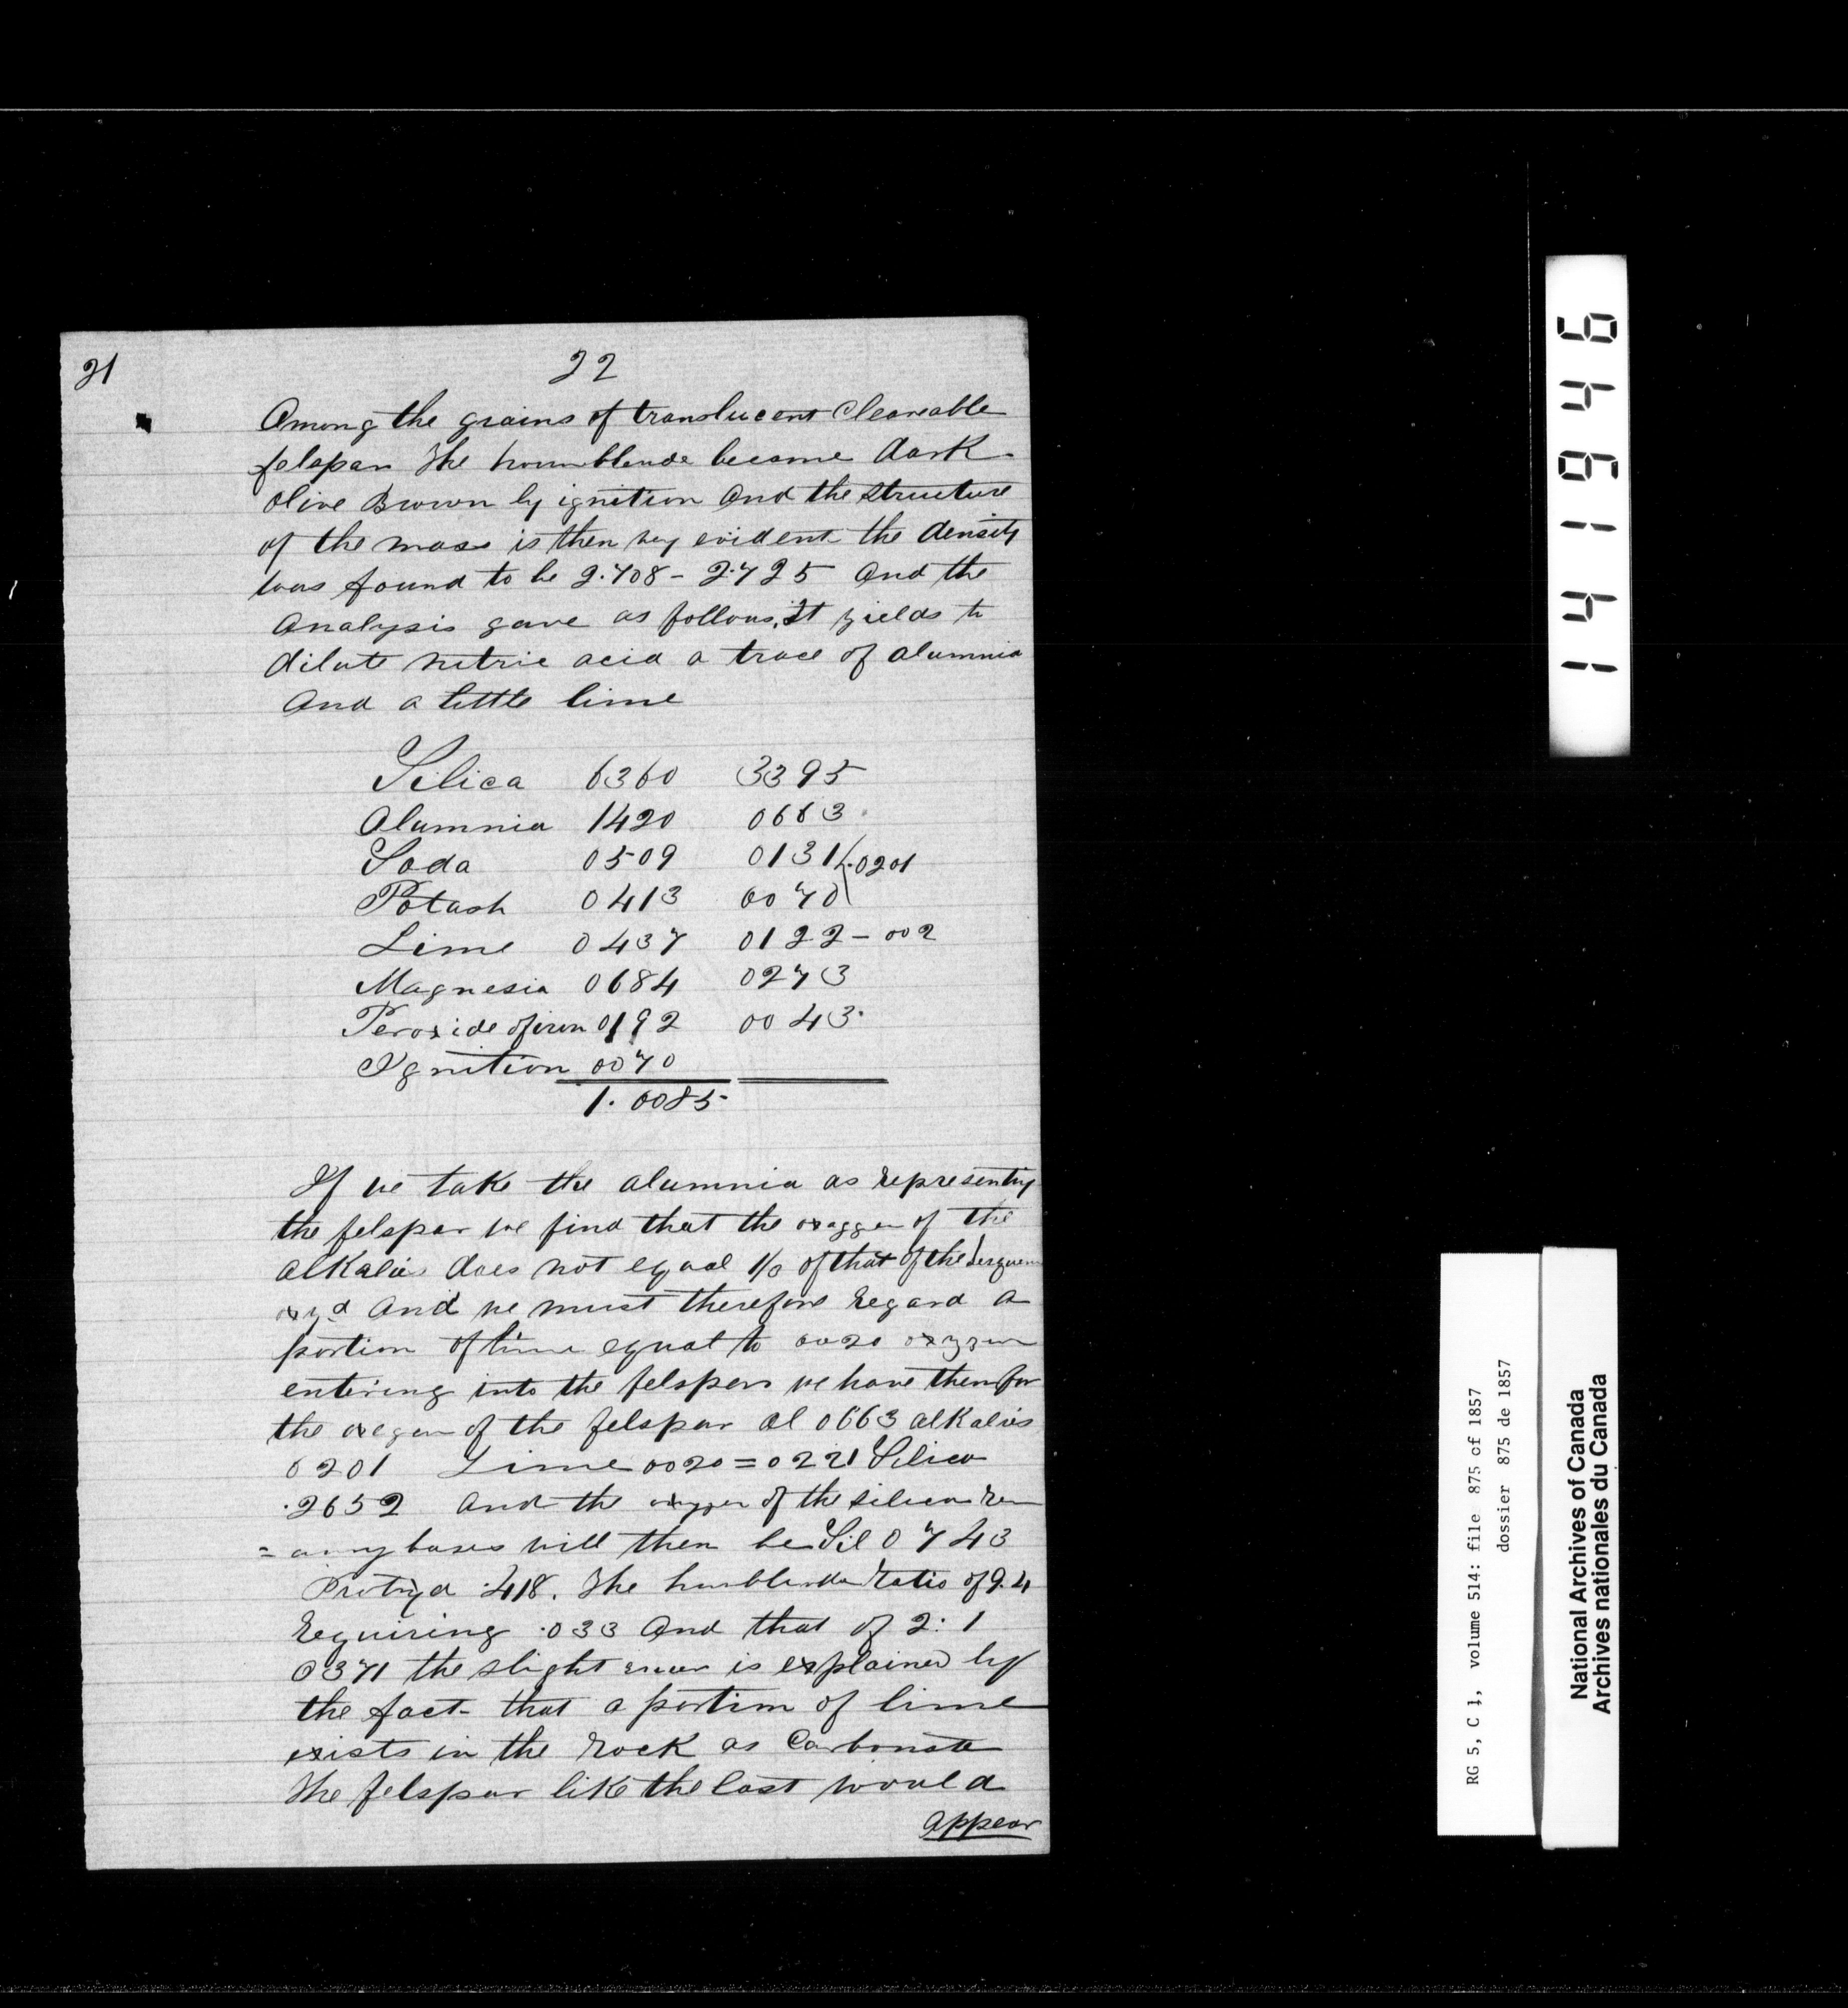 21
22
Among the grains of translucent Cleaveable
felspar The hornblende became dark
Olive Brown by ignition And the structure
of the mass is then very evident the density
was found to be 2.708 - 2.725 And the
Analysis gave as follows, It yields to
dilute nitric acid a trace of alumnia
And a little lime
Silica 6360 3395
Alumnia 1420 0663
Soda 0509 0131 .0201
Potash 0413 0070
Lime 0437 0122 - 002
Magnesia 0684 0273
Peroxide of iron 0192 0043
Ignition 0070
1.0085
If we take the alumnia as representing
the felspar we find that the oxaggen of the
alkalies does not eqaal 1/3 of that of the
oxyd And we must therefore regard a
portion of lime equal to 0020 oxygen
entering into the felspar we have then for
the oxegen of the felspar al 0663 alkalies
0201 Lime 0020 = 0221 Silica
.2652 And the oxygen of the silica rem
= aing bases will then be Sil 0743
Protoxyd .418. The hornblende ratio of 9.4
requiring .033 And that of 2:1
0371 the slight error is explained by
the fact that a portion of lime
exists in the rock as Carbonate
The felspar like the last would
appear
141946
RG 5, C 1, volume 514: file 875 of 1857
dossier 875 de 1857
National Archives of Canada
Archives nationales du Canada